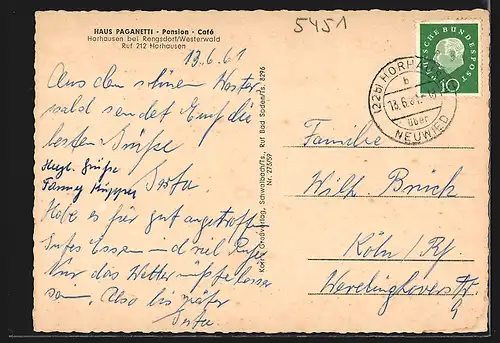 HAUS PAGANETTI - Pension - Café
Horhausen bei Rengsdorf/Westerwald
Ruf 212 Horhausen
5451
13.6.61
Aus dem schönen Wester
wald sendet Euch die
besten Grüße
Herzl. Grüße
Fanny Küpper
Habe es sehr gut angetroffen
Gutes Essen und viel Ruhe
Nur das Wetter müßte besser
sein. Also bis später
Korr's Großverlag, Schwalbach/Ts., Ruf Bad Soden/Ts. 8296
Nr. 275/59
DEUTSCHE BUNDESPOST
10
(22b) HORHAUSEN
b
13.6.61
über
NEUWIED
Familie
Wilh. Brück
Köln / Rh.
4